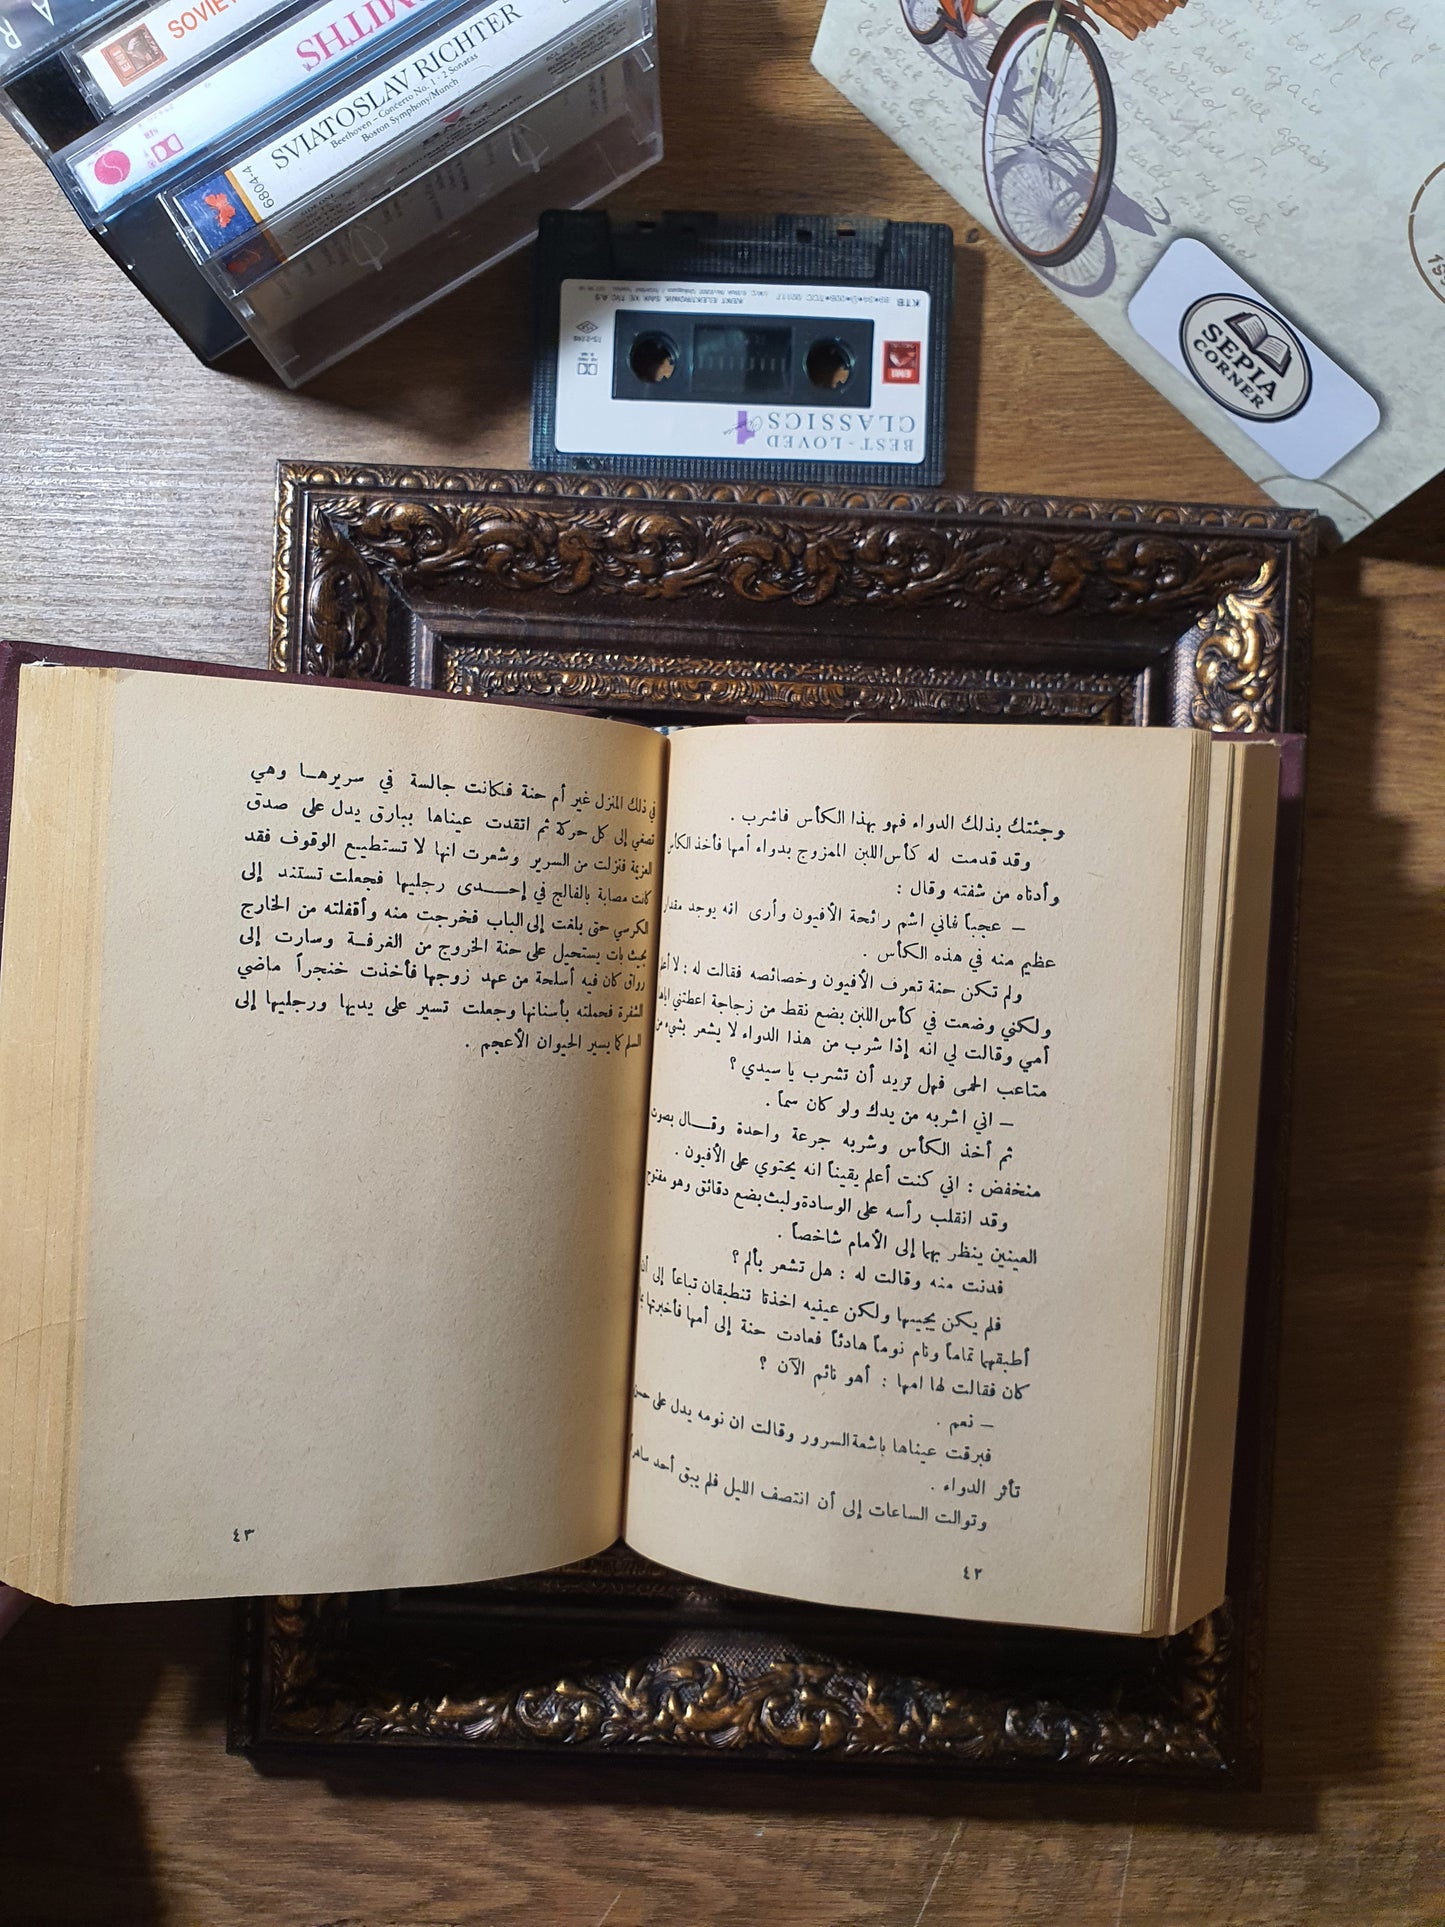 SOVIET
SMITHS
SVIATOSLAV RICHTER
Beethoven – Concerto No. 1 · 2 Sonatas
Boston Symphony/Munch
6804-4
EMI
KTB
KENT ELEKTRONIK SAN VE TIC A.S
BEST - LOVED
CLASSICS 4
EMI
SEPIA
CORNER
وجئتك بذلك الدواء فهو بهذا الكأس فاشرب .
وقد قدمت له كأس اللبن الممزوج بدواء أمها فأخذ الكأس
وأدناه من شفته وقال :
— عجباً فاني اشم رائحة الأفيون وأرى انه يوجد مقدار
عظيم منه في هذه الكأس .
ولم تكن حنة تعرف الأفيون وخصائصه فقالت له : لا أعلم
ولكني وضعت في كأس اللبن بضع نقط من زجاجة اعطتني اياها
أمي وقالت لي انه إذا شرب من هذا الدواء لا يشعر بشيء من
متاعب الحمى فهل تريد أن تشرب يا سيدي ؟
— اني اشربه من يدك ولو كان سماً .
ثم أخذ الكأس وشربه جرعة واحدة وقال بصوت
منخفض : اني كنت أعلم يقيناً انه يحتوي على الأفيون .
وقد انقلب رأسه على الوسادة ولبث بضع دقائق وهو مفتوح
العينين ينظر بهما إلى الأمام شاخصاً .
فدنت منه وقالت له : هل تشعر بألم ؟
فلم يكن يجيبها ولكن عينيه اخذتا تنطبقان تباعاً إلى أن
أطبقهما تماماً ونام نوماً هادئاً فعادت حنة إلى أمها فأخبرتها بما
كان فقالت لها امها : أهو نائم الآن ؟
— نعم .
فبرقت عيناها باشعة السرور وقالت ان نومه يدل على حسن
تأثر الدواء .
وتوالت الساعات إلى أن انتصف الليل فلم يبق أحد ساهراً
٤٢
في ذلك المنزل غير أم حنة فكانت جالسة في سريرها وهي
تصغي إلى كل حركة ثم اتقدت عيناها ببارق يدل على صدق
العزيمة فنزلت من السرير وشعرت انها لا تستطيع الوقوف فقد
كانت مصابة بالفالج في إحدى رجليها فجعلت تستند إلى
الكرسي حتى بلغت إلى الباب فخرجت منه وأقفلته من الخارج
بحيث بات يستحيل على حنة الخروج من الغرفة وسارت إلى
رواق كان فيه أسلحة من عهد زوجها فأخذت خنجراً ماضي
الشفرة فحملته بأسنانها وجعلت تسير على يديها ورجليها إلى
السلم كما يسير الحيوان الأعجم .
٤٣